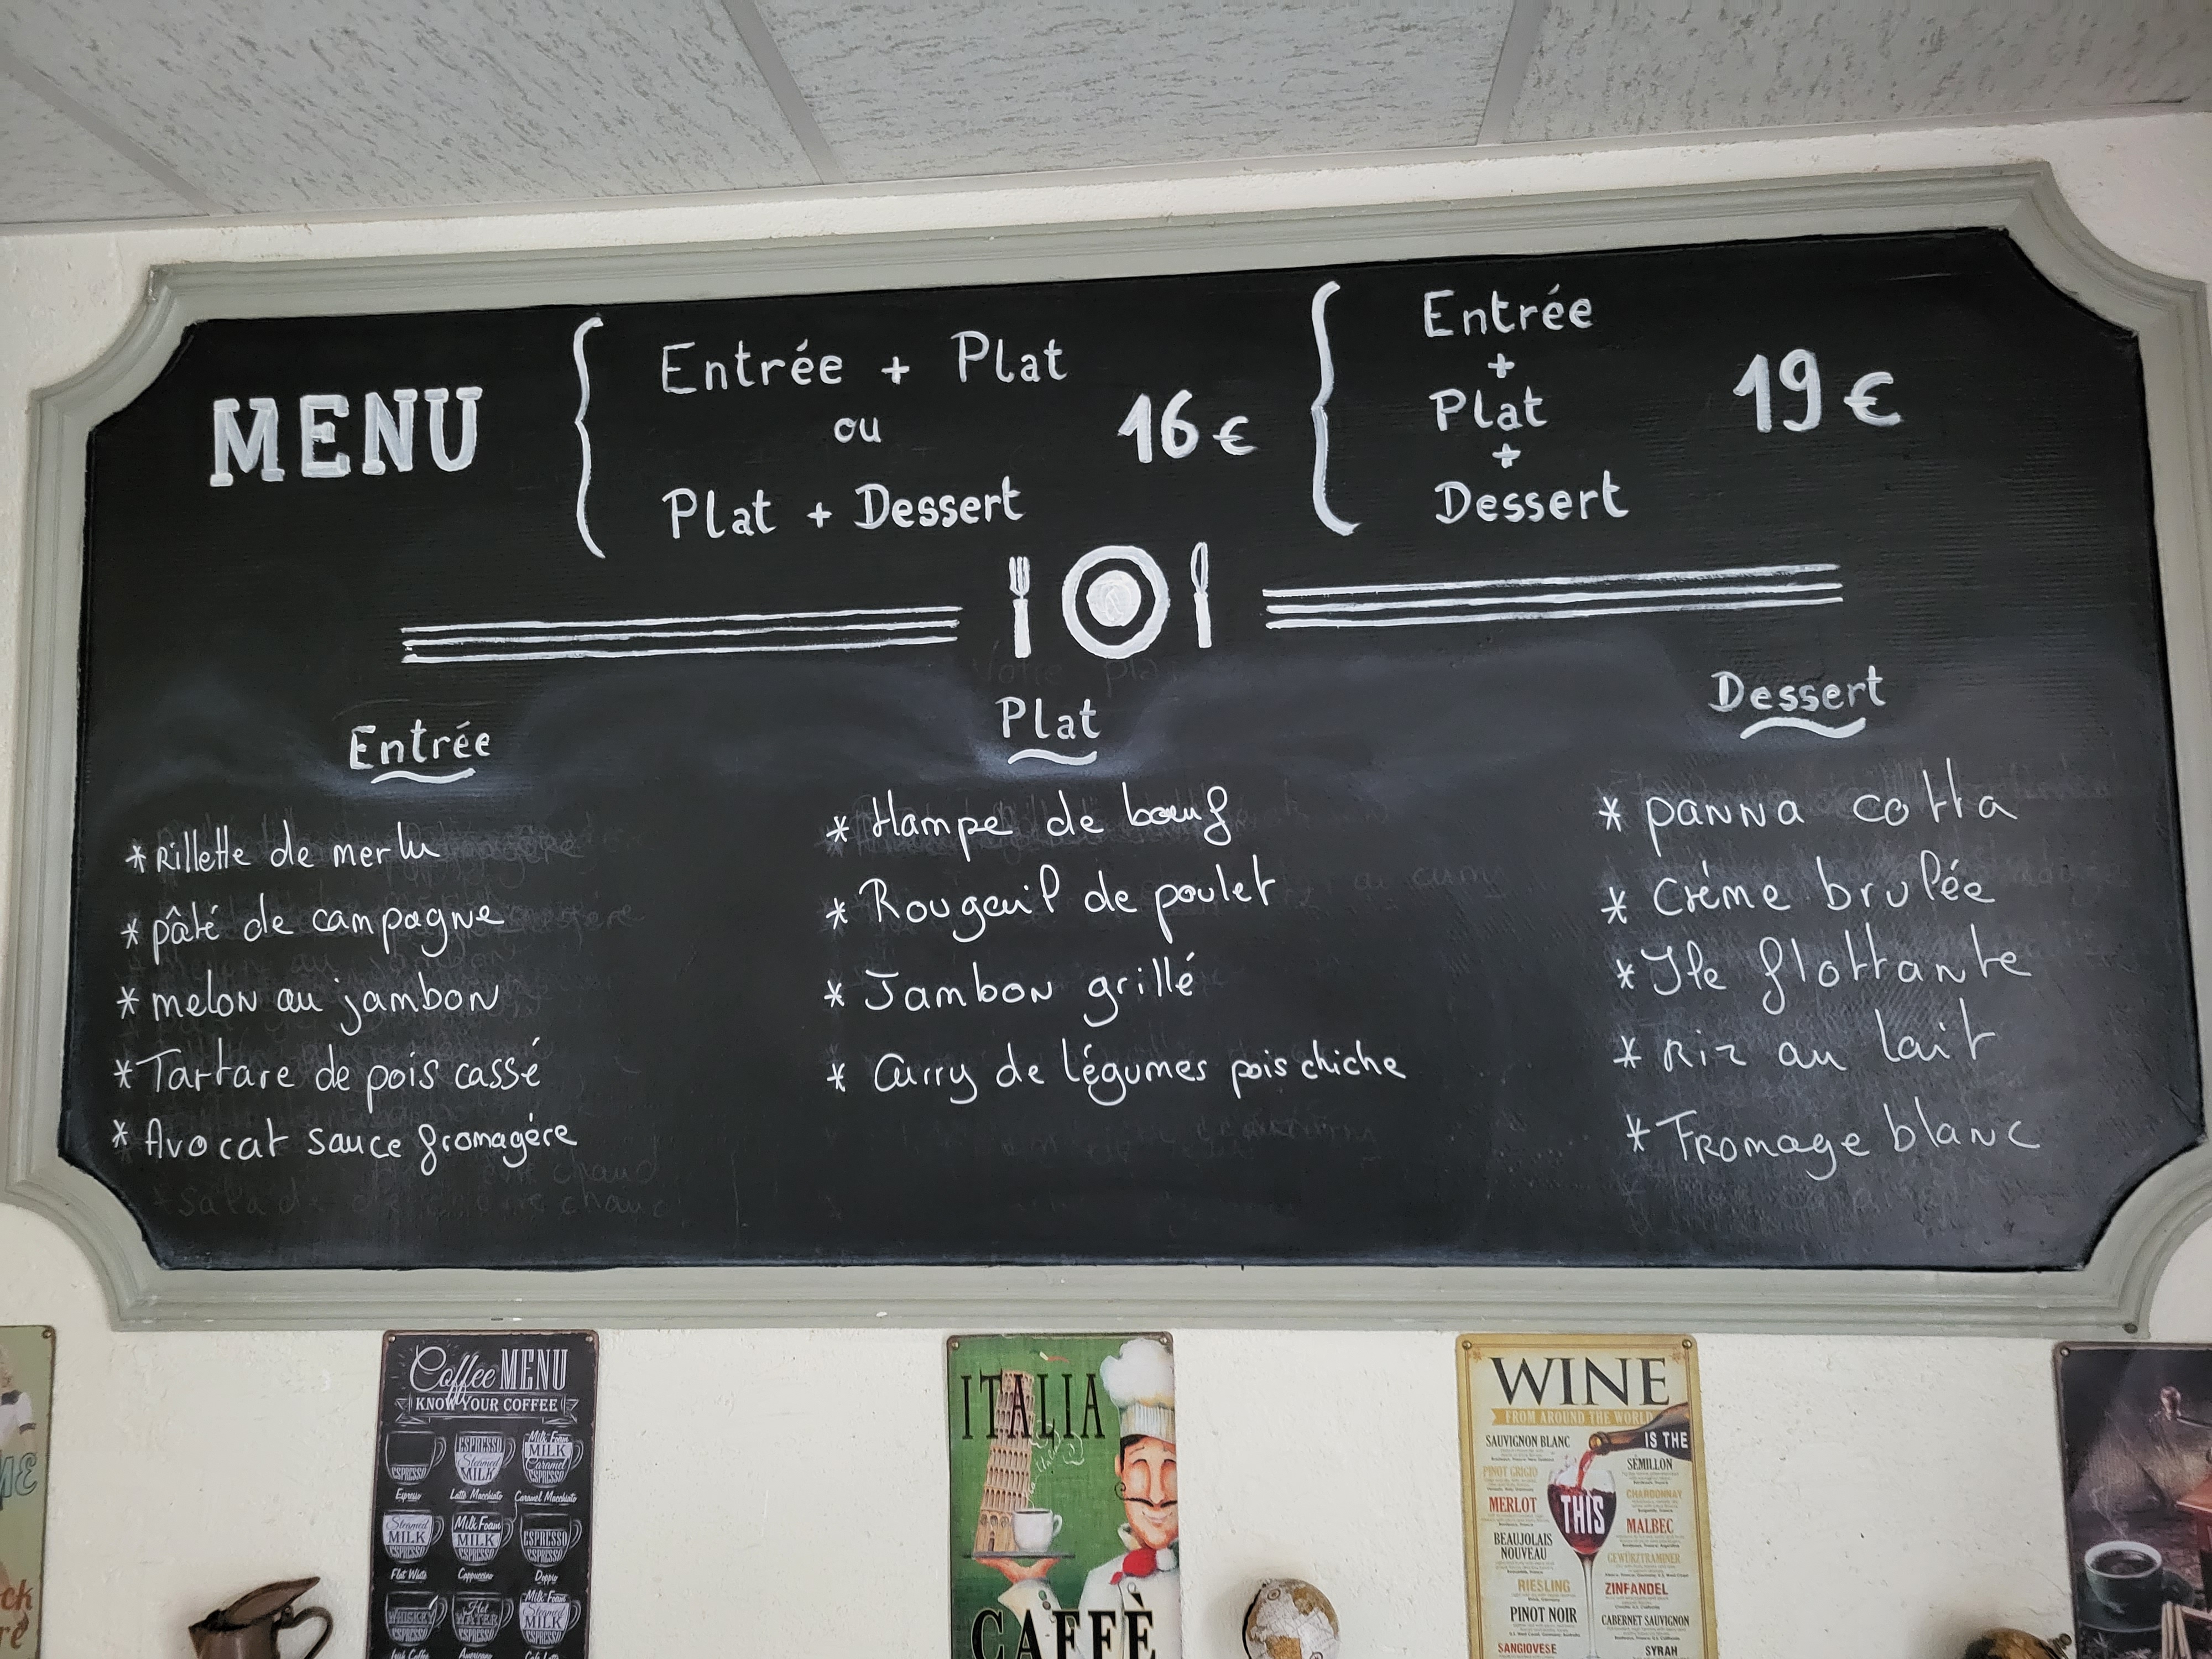 MENU
Entrée + Plat
ou
Plat + Dessert
16€
Entrée
+
Plat
+
Dessert
19€
Entrée
* Rillette de merlu
* pâté de campagne
* melon au jambon
* Tartare de pois cassé
* Avocat sauce fromagère
Plat
* Hampe de bœuf
* Rougail de poulet
* Jambon grillé
* Curry de légumes pois chiche
Dessert
* panna cotta
* Crème brulée
* Ile flottante
* Riz au lait
* Fromage blanc
Coffee MENU
KNOW YOUR COFFEE
ESPRESSO
ESPRESSO
Steamed
MILK
Milk Foam
MILK
Caramel
ESPRESSO
Espresso
Latte Macchiato
Caramel Macchiato
Steamed
MILK
ESPRESSO
Milk Foam
MILK
ESPRESSO
ESPRESSO
ESPRESSO
Flat White
Cappuccino
Doppio
WHISKEY
Hot
WATER
ESPRESSO
Milk Foam
Steamed
MILK
Irish Coffee
Americano
ITALIA
CAFFÈ
WINE
FROM AROUND THE WORLD
IS THE
THIS
SAUVIGNON BLANC
PINOT GRIGIO
MERLOT
BEAUJOLAIS
NOUVEAU
RIESLING
PINOT NOIR
SANGIOVESE
SÉMILLON
CHARDONNAY
MALBEC
GEWÜRZTRAMINER
ZINFANDEL
CABERNET SAUVIGNON
SYRAH